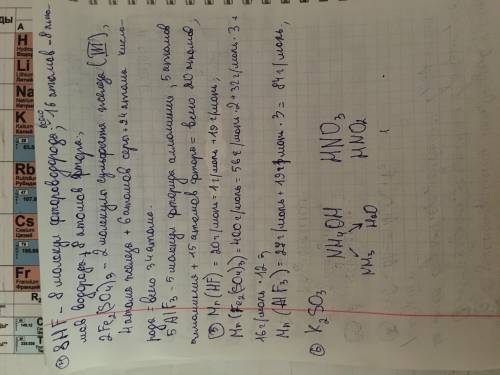 ④ 8HF - 8 молекул фтороводорода, всего 16 атомов - 8 ато-
мов водорода + 8 атомов фтора;
2Fe₂(SO₄)₃ - 2 молекулы сульфата железа (III),
4 атома железа + 6 атомов серы + 24 атома кисло-
рода = всего 34 атома.
5AlF₃ - 5 молекул фторида алюминия, 5 атомов
алюминия + 15 атомов фтора = всего 20 атомов,
⑤ Mr(HF) = 20 г/моль = 1 г/моль + 19 г/моль,
Mr(Fe₂(SO₄)₃) = 400 г/моль = 56 г/моль · 2 + 32 г/моль · 3 +
16 г/моль · 12
Mr(AlF₃) = 27 г/моль + 19 г/моль · 3 = 84 г/моль,
⑥ K₂SO₃ NH₄OH HNO₃
NH₃ H₂O HNO₂
A
H
Li
Na
K
Rb
Cs
Fr